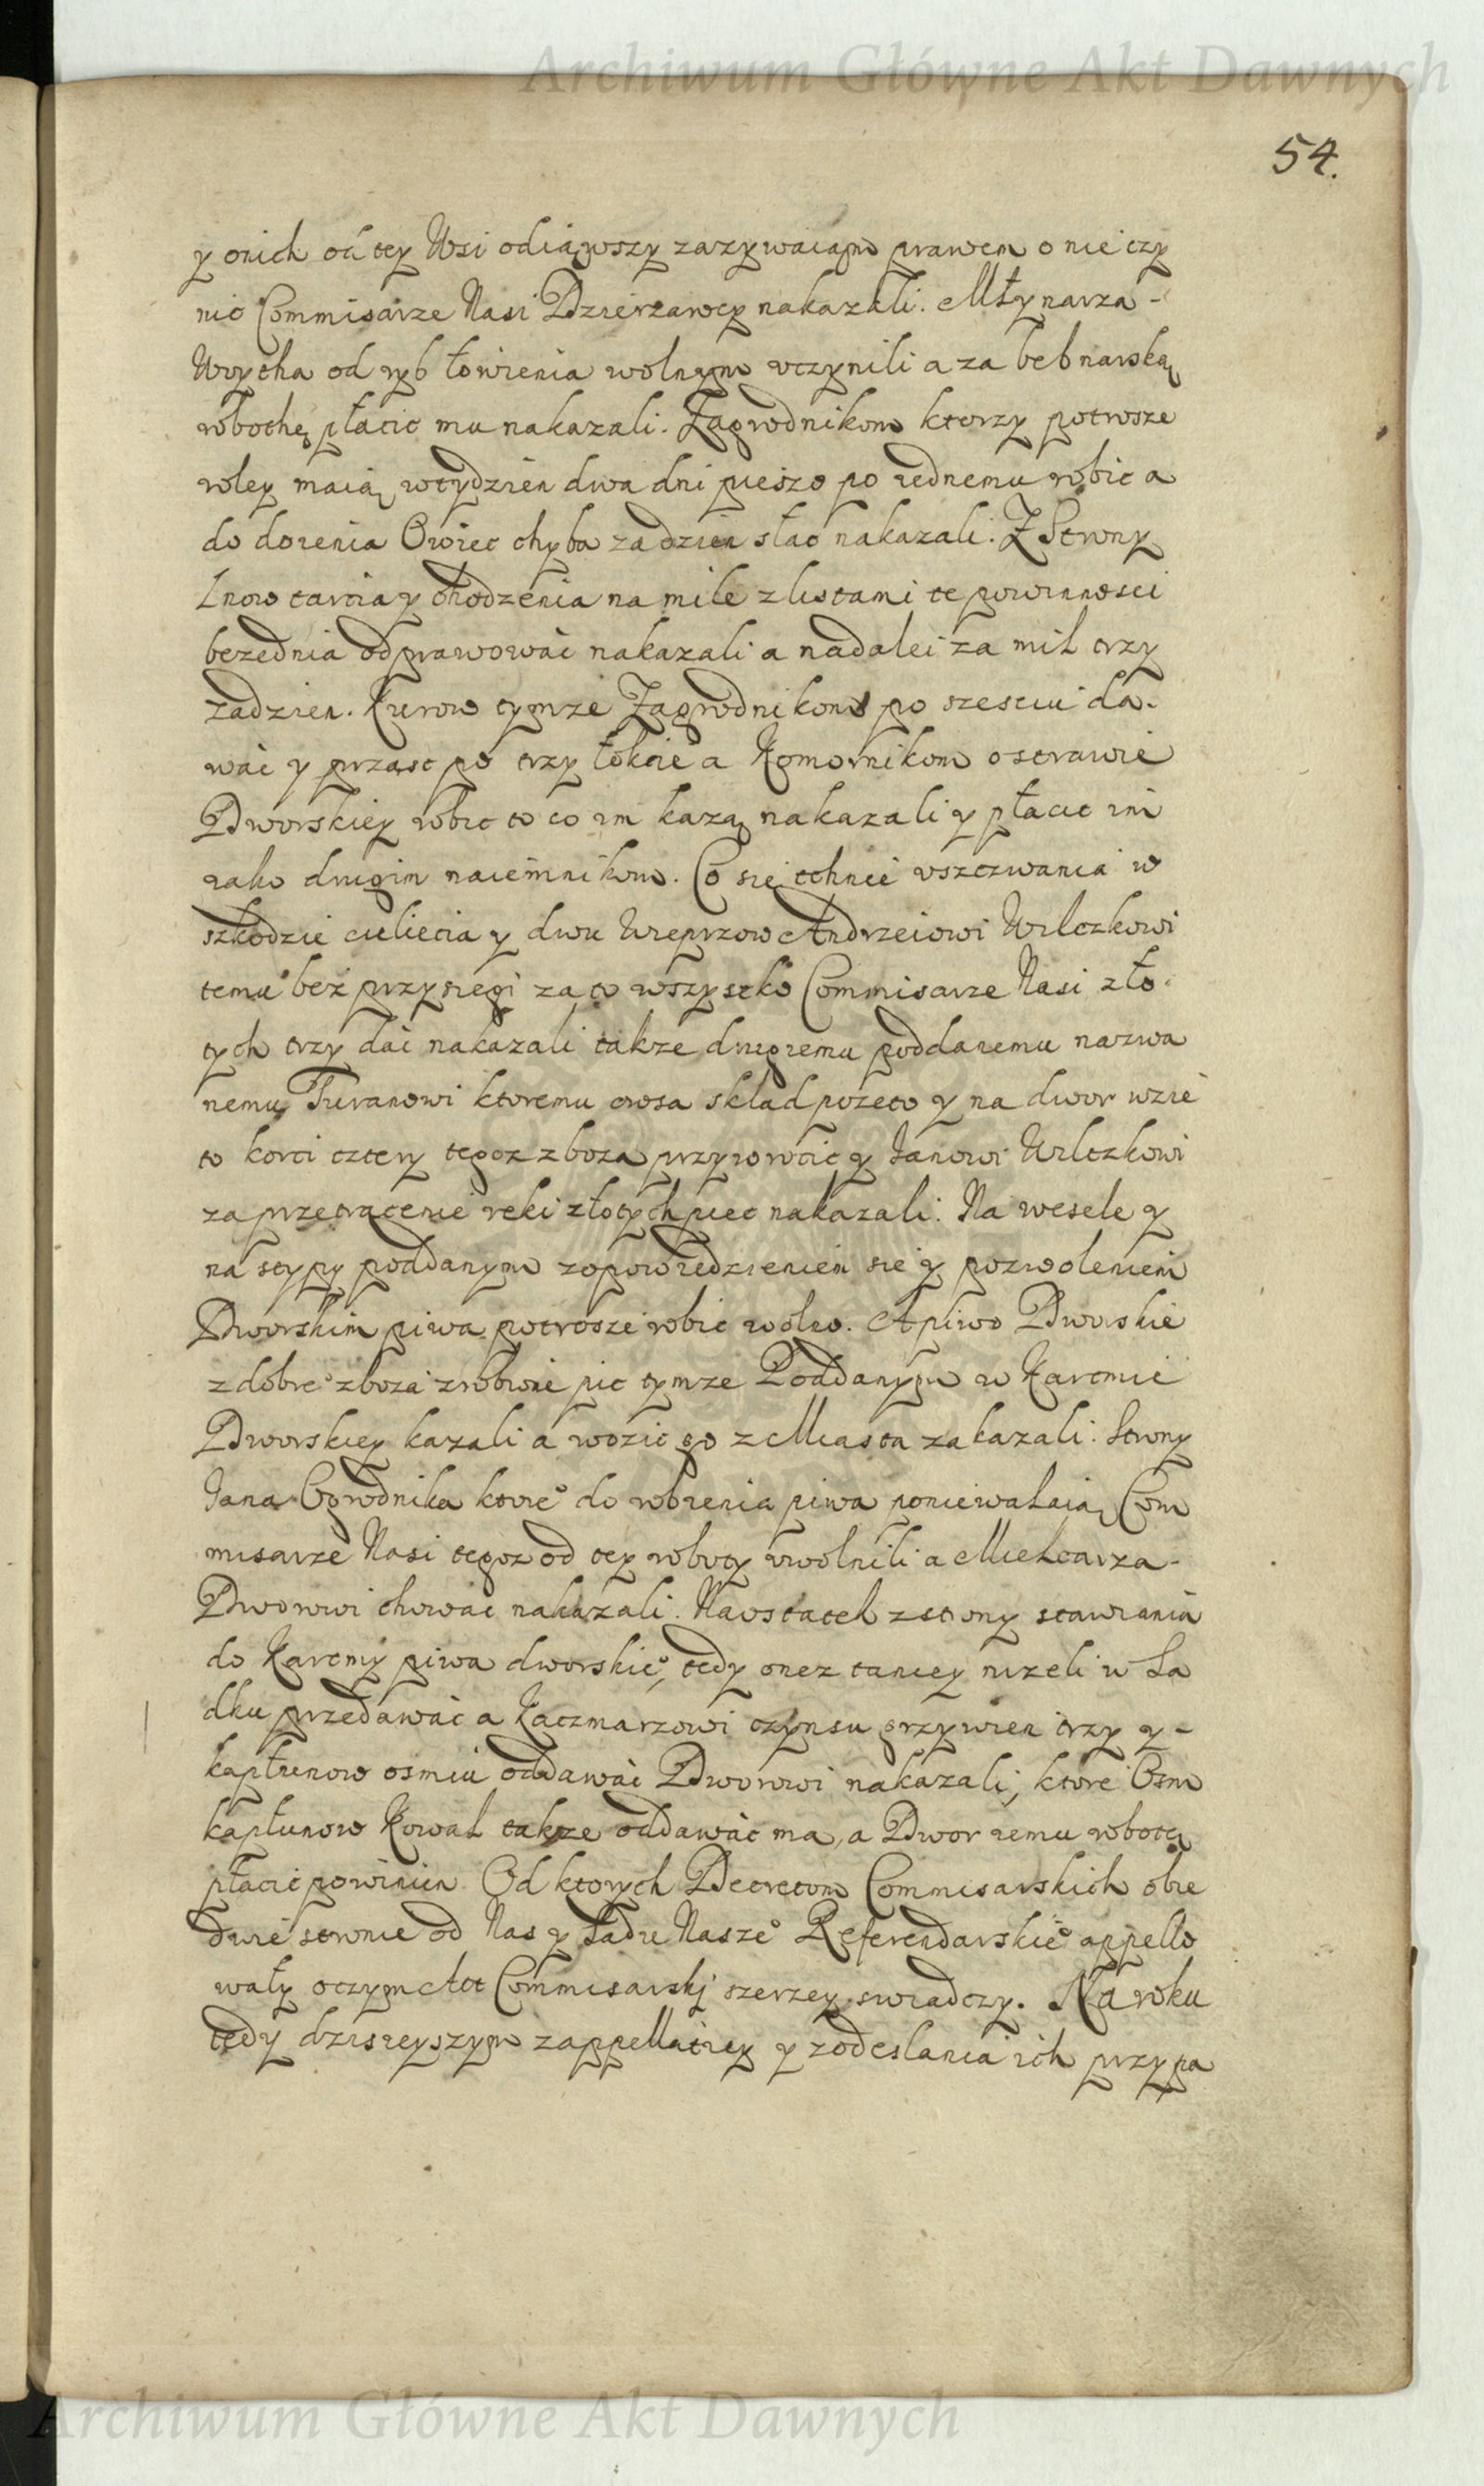 Archiwum Główne Akt Dawnych
54.
y onich od tey Wsi odiąwszy zazywaiąm prawem o nie czy
nic Commisarze Nasi Dzierzawcy nakazali. Młynarza -
Wrycha od ryb łowienia wolnym vczynili a za bebnarską
robothę płacic mu nakazali. Zagrodnikom ktorzy potrosze
roley maią wtydzien dwa dni pieszo po iednemu robic a
do doienia Owiec chyba zadzien stac nakazali. Z Strony
Lnow tarcia y chodzenia na mile zlistami te powinnosci
bezednia odprawować nakazali a nadalei za mil trzy
zadzien. Kurow tymze Zagrodnikom po szesciu da-
wać y prząsc po trzy łokcie a Komornikom o strawie
Dworskiey robic to co im kazą nakazali y płacic im
iako drugim naiemnikom. Co się tchnie vszczwania w
szkodzie cielięcia y dwu Wieprzow Andrzeiowi Wilczkowi
temu bez przysięgi za to wszystko Commisarze Nasi zło-
tych trzy dać nakazali takze drugiemu poddanemu nazwa
nemu Turanowi ktoremu owsa skład pozęto y na dwor wzię
to korci cztery tegoz zboza przywrocic y Janowi Wilczkowi
za przetrącenie ręki złotych pięc nakazali. Na wesele y
na stypy poddanym zopowiedzieniem się y pozwoleniem
Dworskim piwa potrosze robic wolno. A piwo Dworskie
z dobre° zboza zrobione pic tymze Poddanym w Karcmie
Dworskiey kazali a wozic go z Miasta zakazali. Strony
Jana Ogrodnika ktore° do robienia piwa poniewalaią Com
misarze Nasi tegoz od tey roboty vwolnili a Mielcarza -
Dworowi chować nakazali. Naostatek zstrony stawiania
do Karcmy piwa dworskie°, tedy onez taniey nizeli w Są
dku przedawać a Kaczmarzowi czynsu grzywien trzy y -
kapłunow osmiu oddawać Dworowi nakazali, ktore Osm
kapłunow Kowal takze oddawać ma, a Dwor iemu robotę
płacic powinien. Od ktorych Decretow Commisarskich obie
dwie stronie od Nas y Sądu Nasze° Referendarskie° appello
wały oczym Act Commisarskj szerzey swiadczy. Na roku
tedy dzisieyszym zappellatiey y zodeslania ich przypa
Archiwum Główne Akt Dawnych